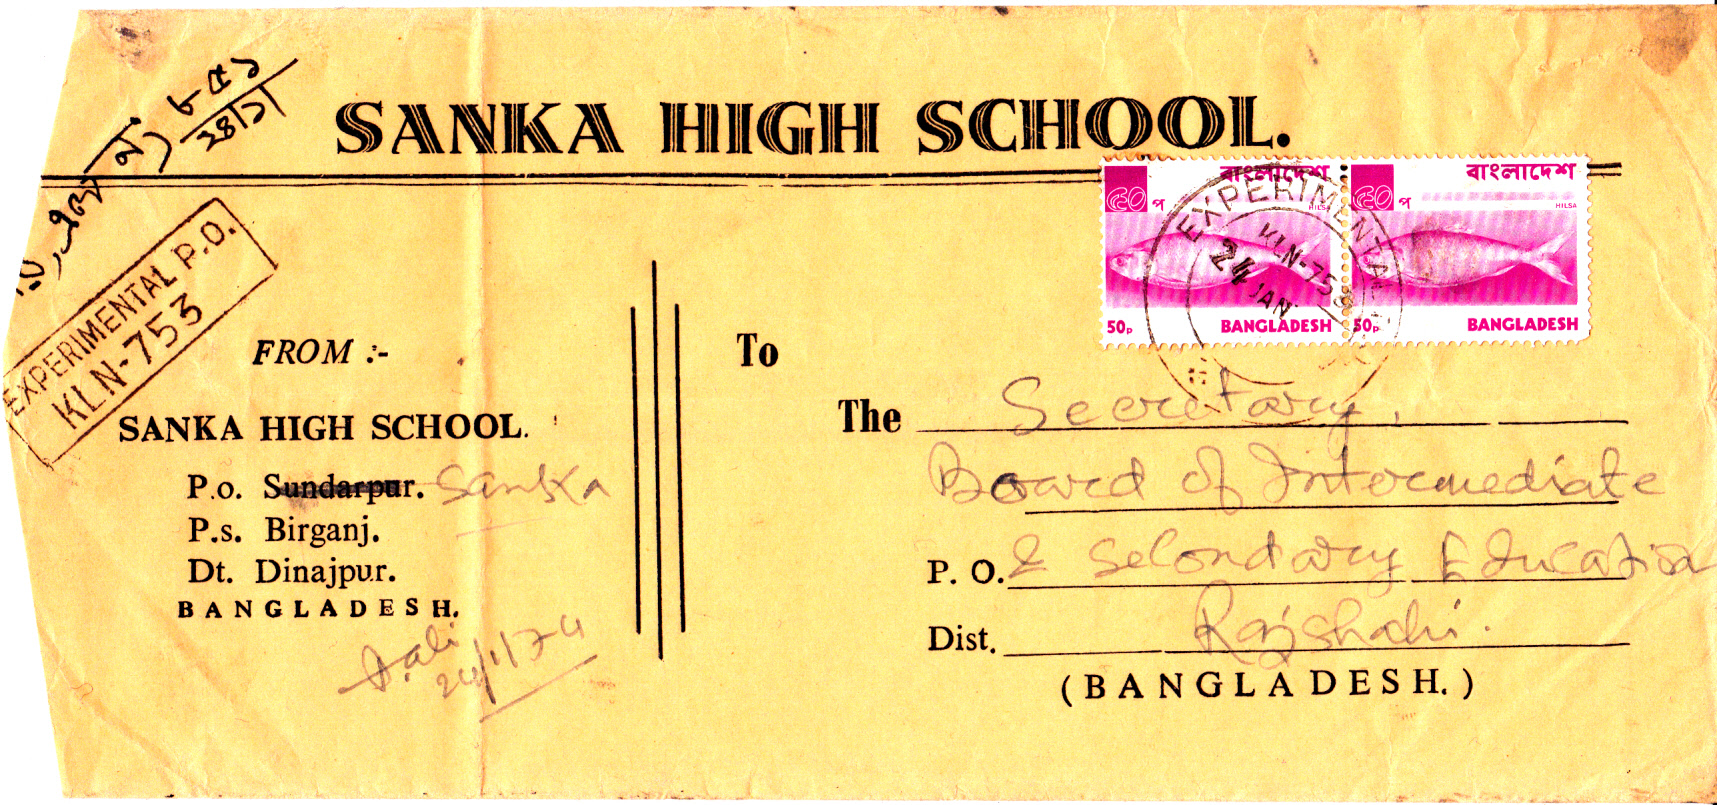 SANKA HIGH SCHOOL.
৮৫১
২৪/১
EXPERIMENTAL P.O.
KLN-753
৫০ প
বাংলাদেশ
HILSA
50p
BANGLADESH
৫০ প
বাংলাদেশ
HILSA
50p
BANGLADESH
EXPERIMENTAL
KLN-753
24 JAN
FROM :-
SANKA HIGH SCHOOL.
P.o. Sundarpur. Sanka
P.s. Birganj.
Dt. Dinajpur.
BANGLADESH.
To
The Secretary,
Board of Intermediate
P. O. & Secondary Education
Dist. Rajshahi.
(BANGLADESH.)